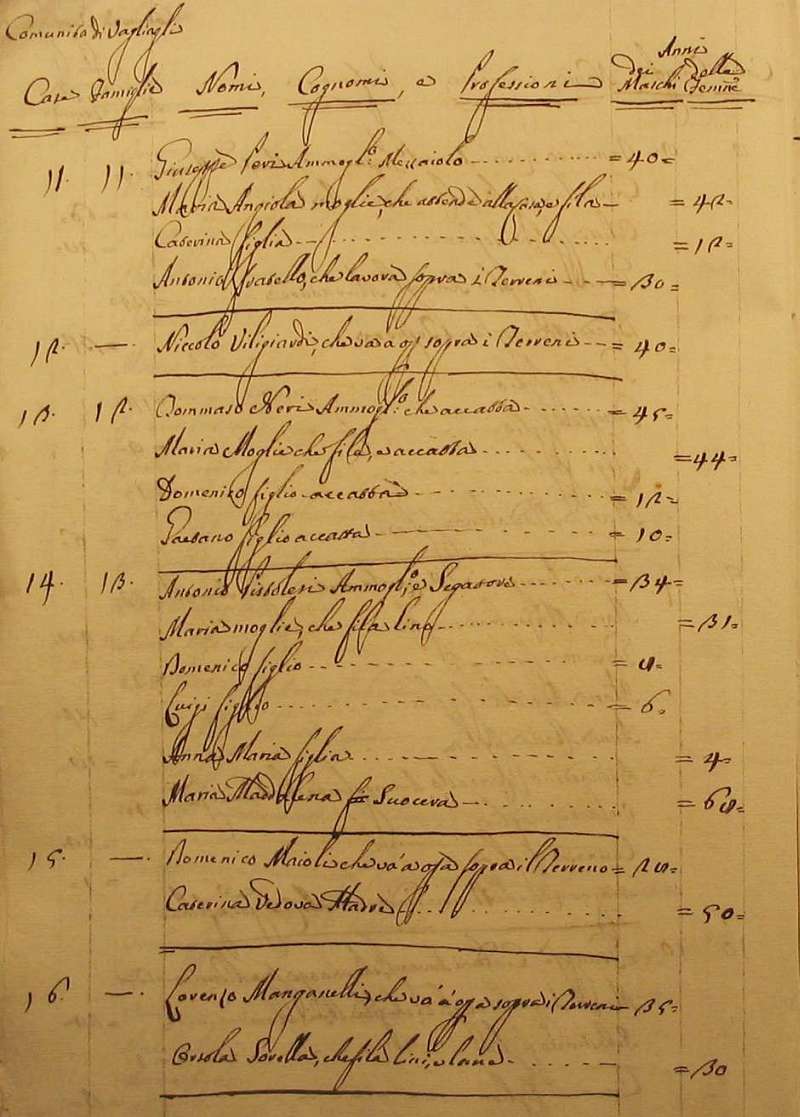 Comunita di Vagliagli
Anni
Case Famiglie Nomi, Cognomi, e Professioni dei Maschi delle Femine
11. 11. Giuseppe Neri Ammogl:o Mezzaiolo = 40 =
Maria Angiola moglie, che attende alla casa, e fila = 42 =
Caterina figlia = 12 =
Antonio fratello, che lavora sopra i Terreni = 30 =
12. — Niccolò Viligiardi, che va a op sopra i Terreni = 40 =
13. 12. Tommaso Neri Ammogl:o che accatta = 45 =
Maria Moglie che fila, e accatta = 44 =
Domenico figlio accatta = 12 =
Gaetano figlio accatta = 10 =
14. 13. Antonio Pistolesi Ammogl:o, e Segatore = 34 =
Maria moglie, che fila lino = 31 =
Domenico figlio = 8 =
Luigi figlio = 6 =
Anna Maria figlia = 4 =
Maria Maddalena Suocera = 68 =
15. — Domenico Maioli che va a opa sopra il Terreno = 28 =
Caterina Vedova Madre = 50 =
16. — Lorenzo Manganelli, che va a opa sopra i Terreni = 35 =
Orsola Sorella, che fila lini, e lane = 30